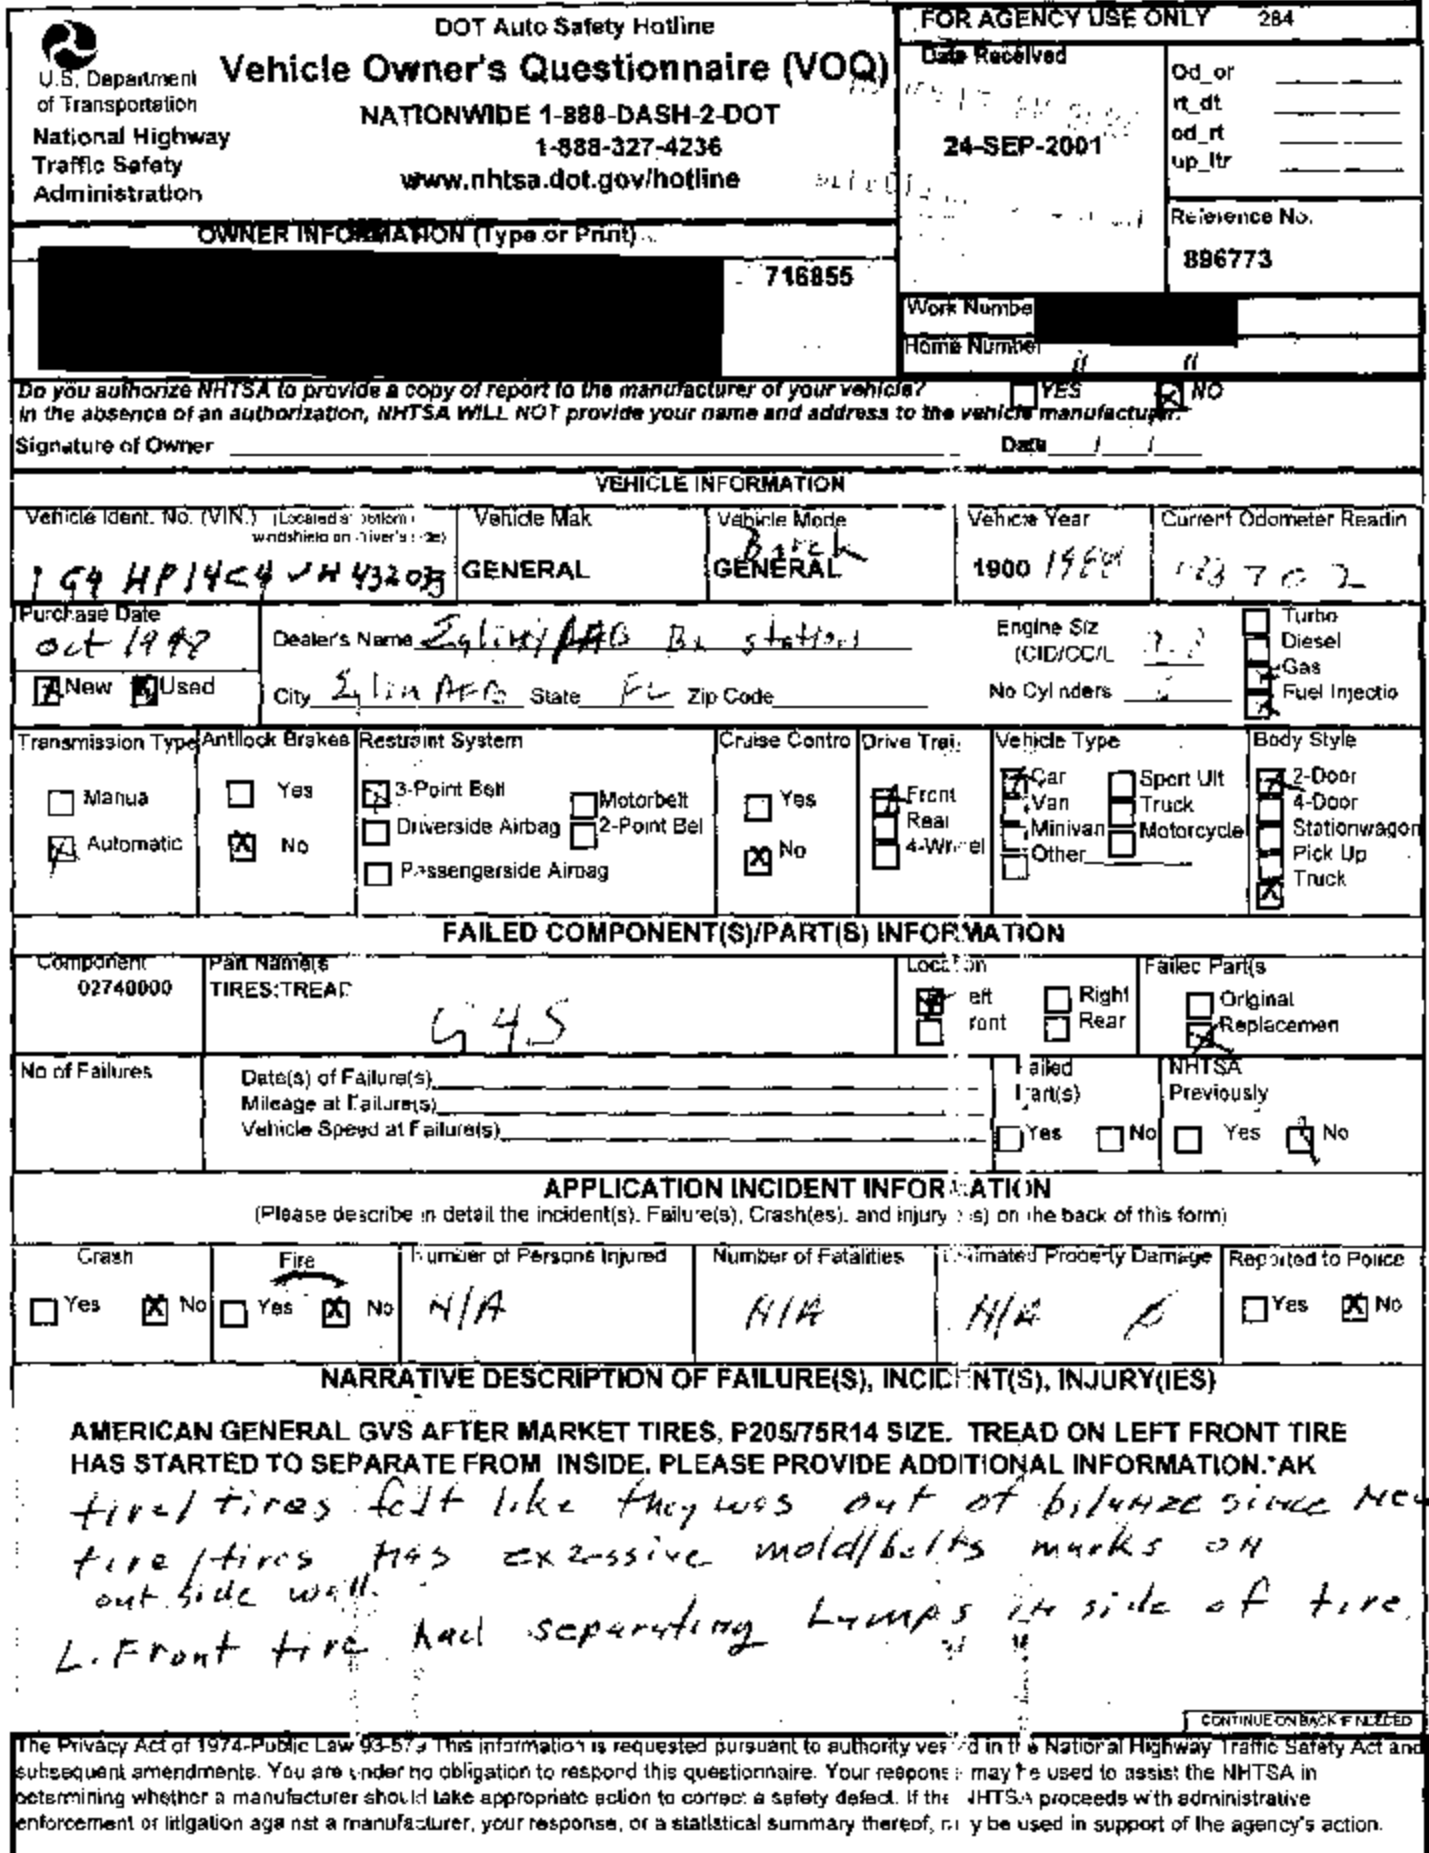 DOT Auto Safety Hotline
Vehicle Owner's Questionnaire (VOQ)
NATIONWIDE 1-888-DASH-2-DOT
1-888-327-4236
www.nhtsa.dot.gov/hotline
U.S. Department
of Transportation
National Highway
Traffic Safety
Administration
FOR AGENCY USE ONLY 284
Date Received
24-SEP-2001
Od_or
rt_dt
od_rt
up_ltr
Reference No.
896773
OWNER INFORMATION (Type or Print)
716855
Work Numbe
Home Number
Do you authorize NHTSA to provide a copy of report to the manufacturer of your vehicle? YES NO
In the absence of an authorization, NHTSA WILL NOT provide your name and address to the vehicle manufacturer.
Signature of Owner Date / /
VEHICLE INFORMATION
Vehicle Ident. No. (VIN.) (Located at bottom
windshield on driver's side)
Vehicle Mak
GENERAL
Vehicle Mode
GENERAL
Vehicle Year
1900
Current Odometer Readin
Purchase Date
oct 1998
New Used
Dealer's Name
City Eglin AFB State FL Zip Code
Engine Siz
(CID/CC/L
No Cylinders
Turbo
Diesel
Gas
Fuel Injectio
Transmission Type
Manua
Automatic
Antilock Brakes
Yes
No
Restraint System
3-Point Belt
Driverside Airbag
Passengerside Airbag
Motorbelt
2-Point Bel
Cruise Contro
Yes
No
Drive Trai
Front
Rear
4-Wheel
Vehicle Type
Car
Van
Minivan
Other
Sport Ult
Truck
Motorcycle
Body Style
2-Door
4-Door
Stationwagon
Pick Up
Truck
FAILED COMPONENT(S)/PART(S) INFORMATION
Component
02740000
Part Name/s
TIRES:TREAD
Location
eft
ront
Right
Rear
Failed Part(s
Original
Replacemen
No of Failures
Date(s) of Failure(s)
Mileage at Failure(s)
Vehicle Speed at Failure(s)
Failed
Part(s)
Yes No
NHTSA
Previously
Yes No
APPLICATION INCIDENT INFORMATION
(Please describe in detail the incident(s), Failure(s), Crash(es), and injury(ies) on the back of this form)
Crash
Yes No
Fire
Yes No
Number of Persons Injured
N/A
Number of Fatalities
N/A
Estimated Property Damage
N/A
Reported to Police
Yes No
NARRATIVE DESCRIPTION OF FAILURE(S), INCIDENT(S), INJURY(IES)
AMERICAN GENERAL GVS AFTER MARKET TIRES, P205/75R14 SIZE. TREAD ON LEFT FRONT TIRE
HAS STARTED TO SEPARATE FROM INSIDE. PLEASE PROVIDE ADDITIONAL INFORMATION.*AK
tire/tires felt like they was out of since New
tire/tires has mold/belts marks on
out side wall.
L. Front tire had separating Lumps in side of tire.
CONTINUE ON BACK IF NEEDED
The Privacy Act of 1974-Public Law 93-579 This information is requested pursuant to authority vested in the National Highway Traffic Safety Act and
subsequent amendments. You are under no obligation to respond this questionnaire. Your response may be used to assist the NHTSA in
determining whether a manufacturer should take appropriate action to correct a safety defect. If the NHTSA proceeds with administrative
enforcement or litigation against a manufacturer, your response, or a statistical summary thereof, may be used in support of the agency's action.